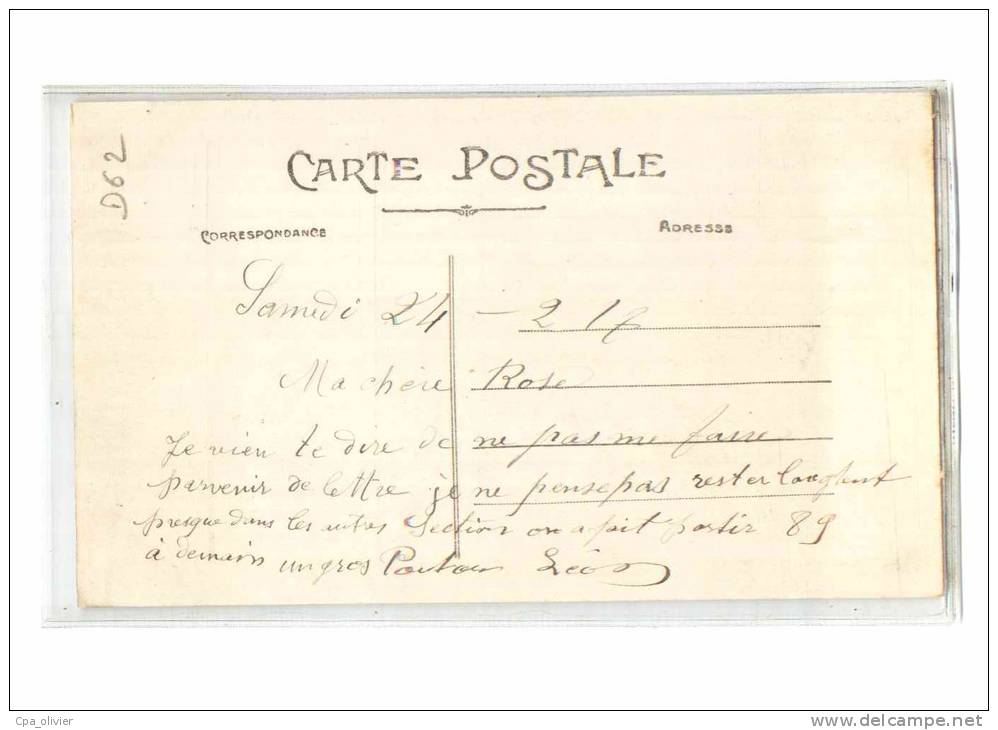 D62
CARTE POSTALE
CORRESPONDANCE
ADRESSE
Samedi 24 – 2 17
Ma chère Rose
Je vien te dire de ne pas me faire
parvenir de lettre je ne pense pas rester
presque dans les autres Section on a fait partir 89
à demain un gros Léon
Cpa_olivier
www.delcampe.net